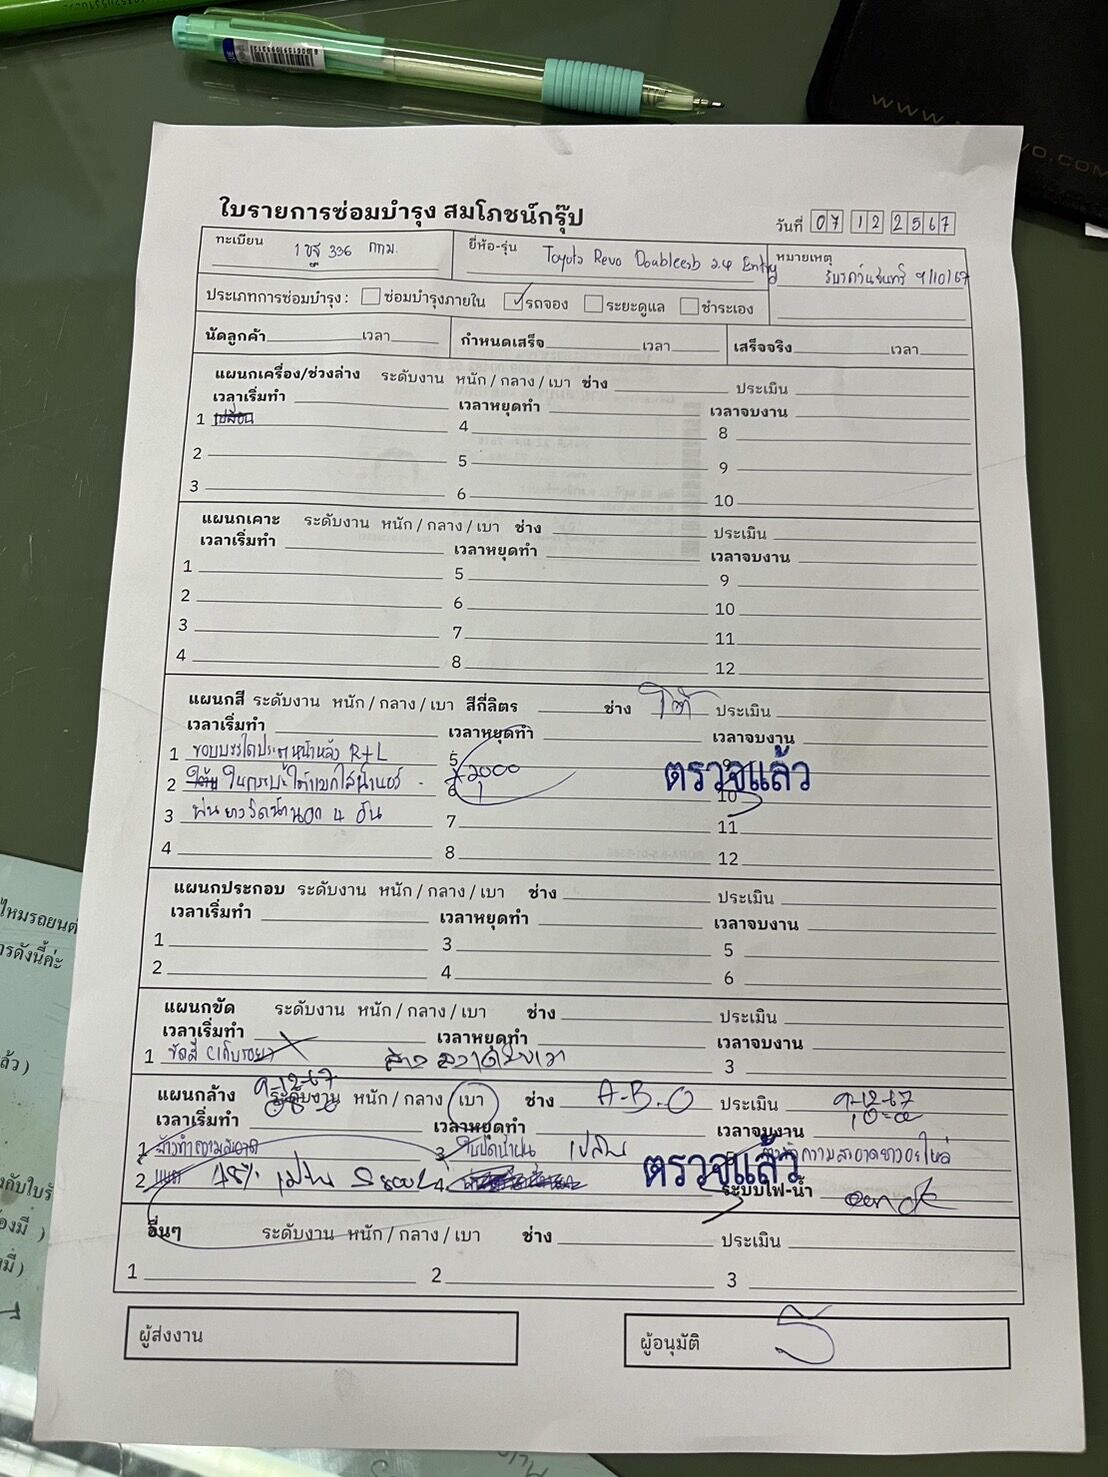 ใบรายการซ่อมบำรุง สมโภชน์กรุ๊ป
วันที่ 07 12 2567
ทะเบียน 1 ขฐ 336 กทม.
ยี่ห้อ-รุ่น Toyota Revo Doublecab 2.4 Entry
หมายเหตุ 9/10/67
ประเภทการซ่อมบำรุง : ซ่อมบำรุงภายใน รถจอง ระยะดูแล ชำระเอง
นัดลูกค้า เวลา กำหนดเสร็จ เวลา เสร็จจริง เวลา
แผนกเครื่อง/ช่วงล่าง ระดับงาน หนัก / กลาง / เบา ช่าง ประเมิน
เวลาเริ่มทำ เวลาหยุดทำ เวลาจบงาน
1 เปลี่ยน 4 8
2 5 9
3 6 10
แผนกเคาะ ระดับงาน หนัก / กลาง / เบา ช่าง ประเมิน
เวลาเริ่มทำ เวลาหยุดทำ เวลาจบงาน
1 5 9
2 6 10
3 7 11
4 8 12
แผนกสี ระดับงาน หนัก / กลาง / เบา สีกี่ลิตร ช่าง โต้ ประเมิน
เวลาเริ่มทำ เวลาหยุดทำ เวลาจบงาน
1 ขอบบรรไดประตูหน้าหลัง R+L 5
2 ในกระบะใต้แมกไลน์เนอร์ 6 2000 10
ตรวจแล้ว
3 พ่นยางรีดน้ำนอก 4 อัน 7 11
4 8 12
แผนกประกอบ ระดับงาน หนัก / กลาง / เบา ช่าง ประเมิน
เวลาเริ่มทำ เวลาหยุดทำ เวลาจบงาน
1 3 5
2 4 6
แผนกขัด ระดับงาน หนัก / กลาง / เบา ช่าง ประเมิน
เวลาเริ่มทำ เวลาหยุดทำ เวลาจบงาน
1 ขัดสี (เก็บรอย) 3
แผนกล้าง 9-12-67 ระดับงาน หนัก / กลาง / เบา ช่าง A-B.O ประเมิน 9-12-67
เวลาเริ่มทำ เวลาหยุดทำ เวลาจบงาน
1 ล้างทำความสะอาด 3 ใบปัดน้ำฝน
2 4
ตรวจแล้ว
ระบบไฟ-น้ำ
อื่นๆ ระดับงาน หนัก / กลาง / เบา ช่าง ประเมิน
1 2 3
ผู้ส่งงาน
ผู้อนุมัติ